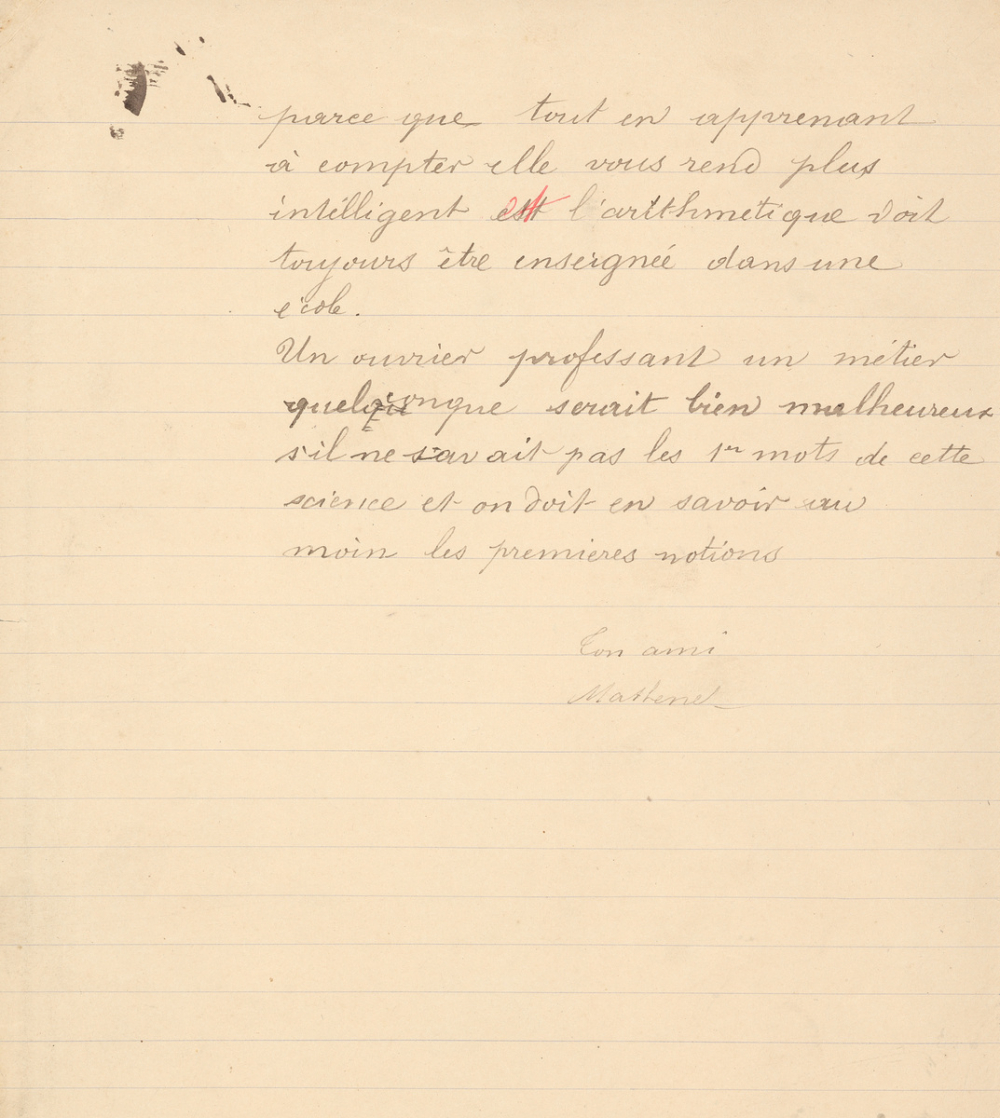 parce que tout en apprenant
à compter elle vous rend plus
intélligent et l'arithmetique doit
toujours être enseignée dans une
école.
Un ouvrier professant un métier
quelqonque serait bien malheureux
s'il ne savait pas les 1er mots de cette
science et on doit en savoir au
moin les premieres notions
Ton ami